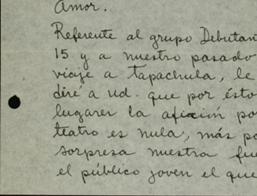 Amor.
Referente al grupo Debutan
15 y a nuestro pasado
viaje a Tapachula, le
diré a ud. que por ésto
lugares la afición po
teatro es nula, más pa
sorpresa nuestra fu
el público joven el que